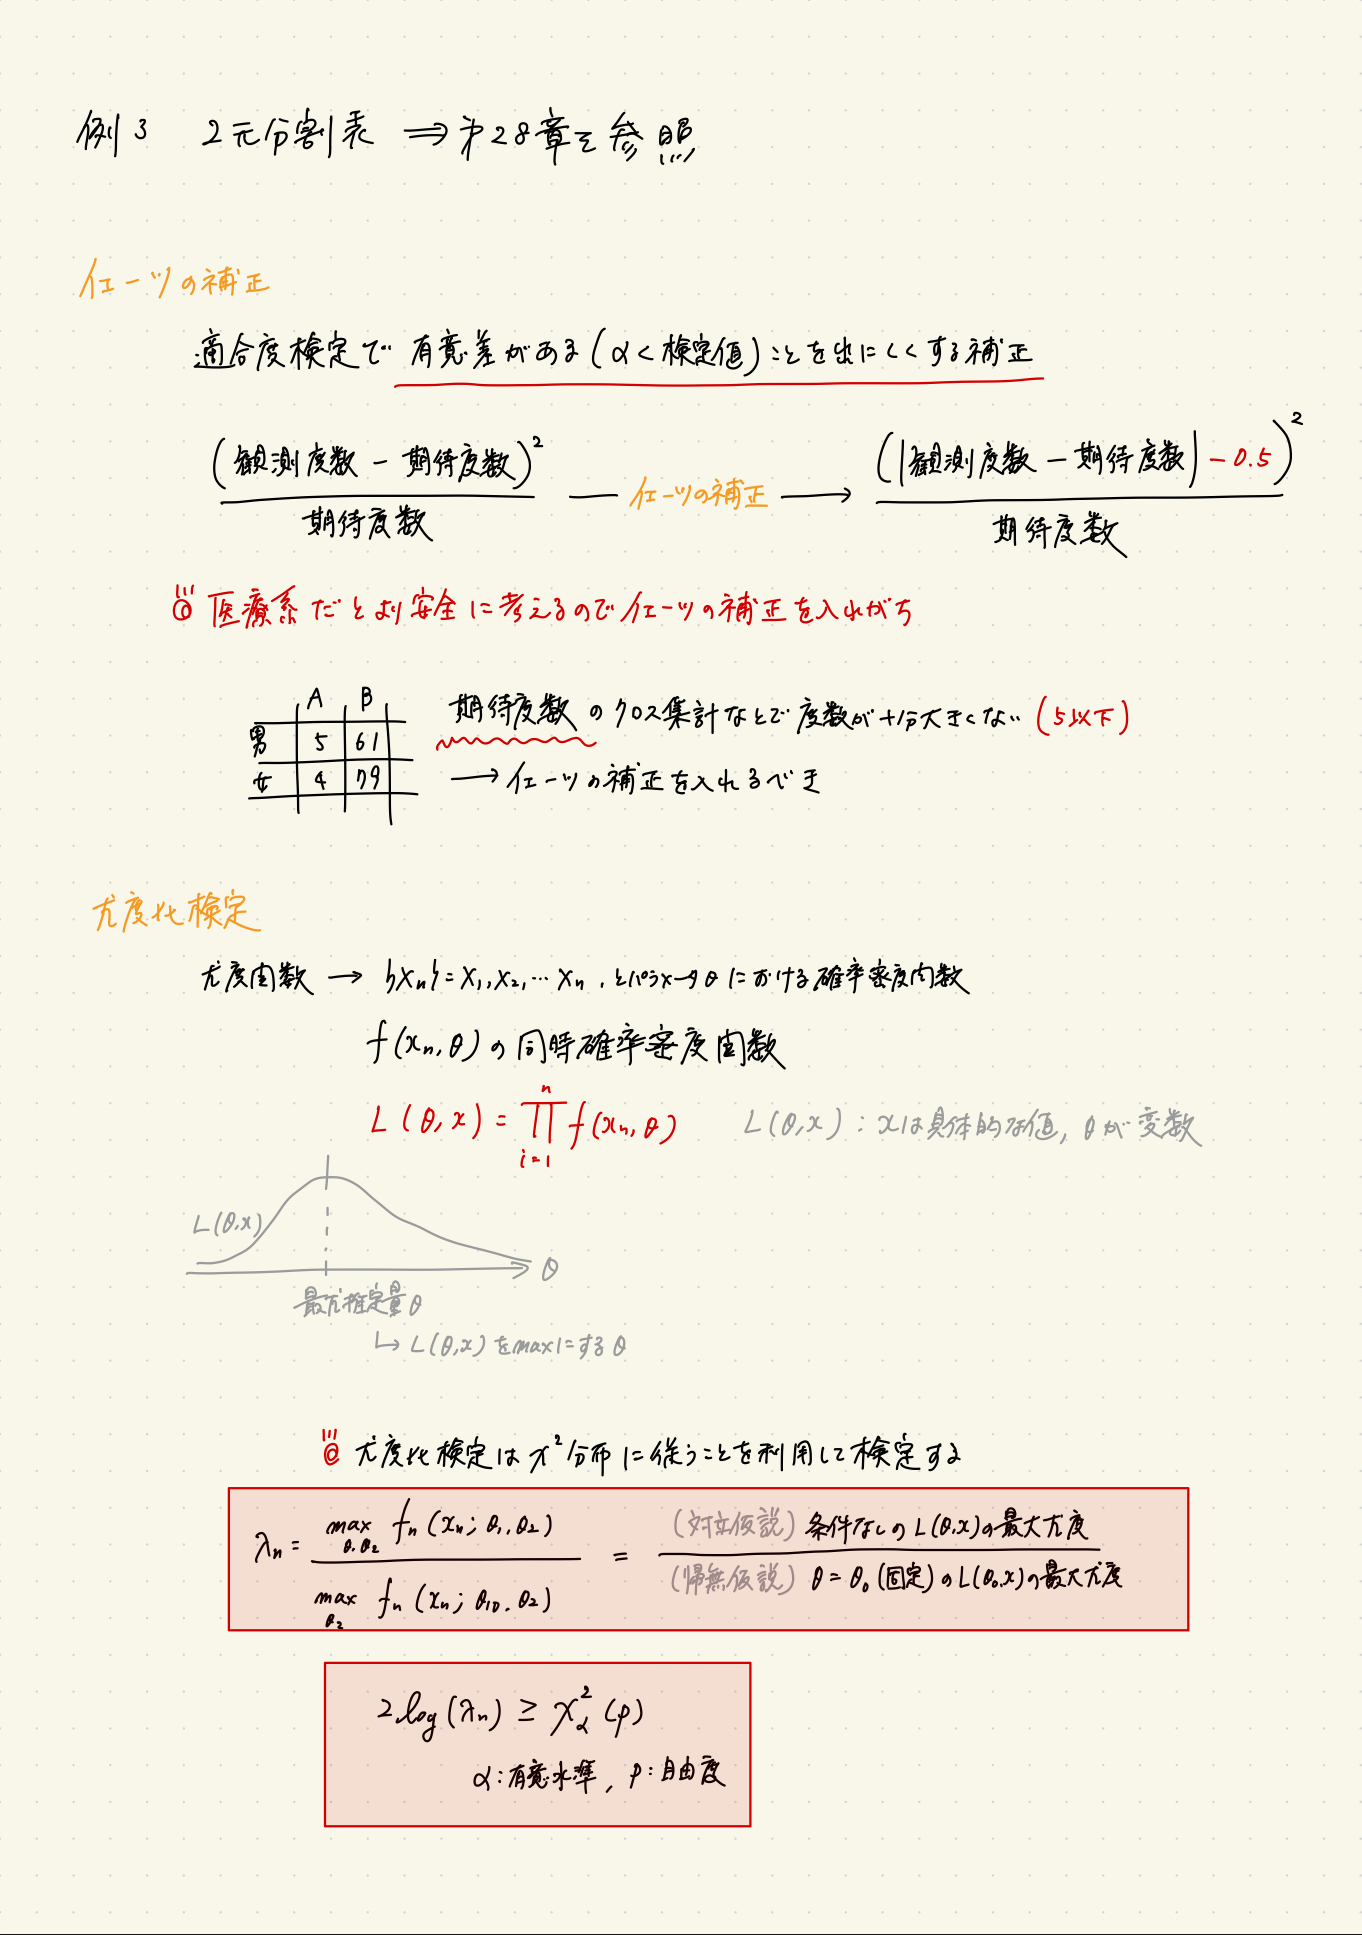 例3 2元分割表 ⇒ 第28章を参照
イエーツの補正
適合度検定で有意差がある(α<検定値)ことを出にくくする補正
(観測度数 − 期待度数)² / 期待度数 — イエーツの補正 → (|観測度数 − 期待度数| − 0.5)² / 期待度数
医療系だとより安全に考えるのでイエーツの補正を入れがち
A B
男 5 61
女 4 79
期待度数のクロス集計などで度数が十分大きくない(5以下)
→ イエーツの補正を入れるべき
尤度比検定
尤度関数 → {Xn} = X1, X2, … Xn, とパラメータθにおける確率密度関数
f(xn, θ)の同時確率密度関数
L(θ, x) = ∏ⁿᵢ₌₁ f(xn, θ)
L(θ, x) : xは具体的な値, θが変数
L(θ, x)
θ
最尤推定量θ
↳ L(θ, x)をmaxにするθ
尤度比検定はχ²分布に従うことを利用して検定する
λn = max θ,θ2 fn(xn; θ1, θ2) / max θ2 fn(xn; θ10, θ2) = (対立仮説) 条件なしのL(θ,x)の最大尤度 / (帰無仮説) θ = θ0(固定)のL(θ0,x)の最大尤度
2log(λn) ≥ χ²α(p)
α:有意水準, p:自由度